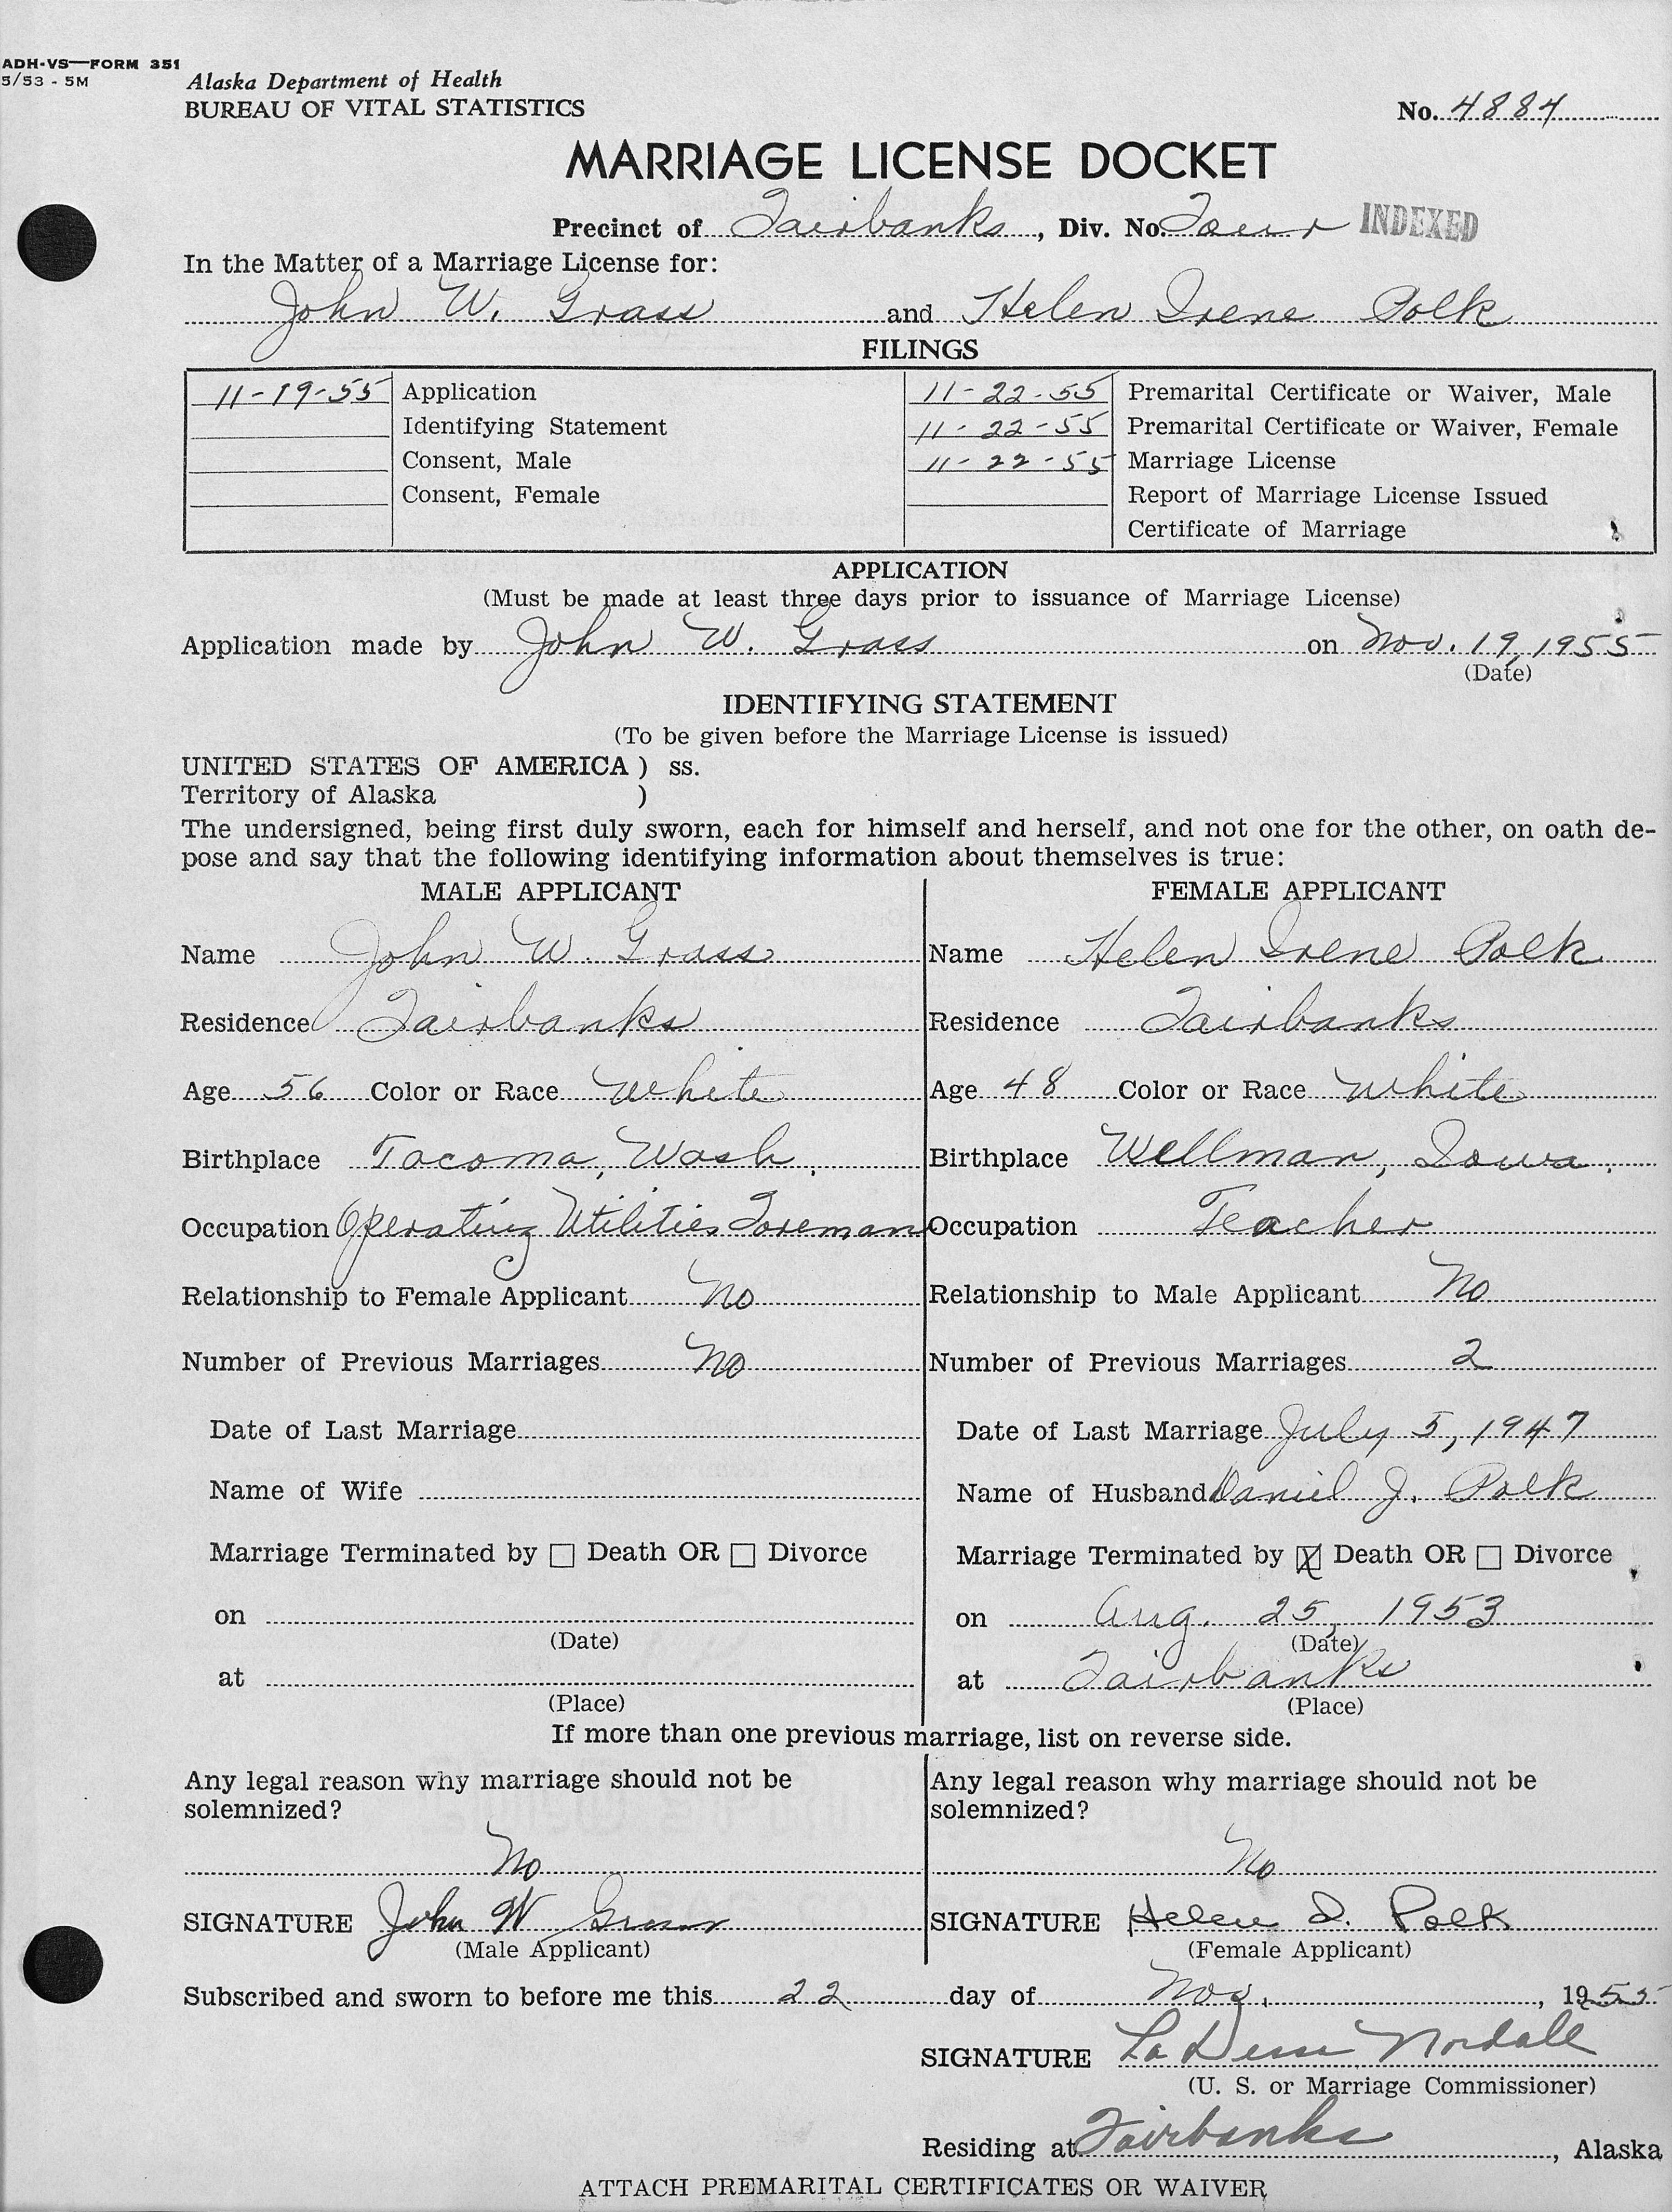 ADH-VS—FORM 351
5/53 - 5M
Alaska Department of Health
BUREAU OF VITAL STATISTICS
No. 4884
MARRIAGE LICENSE DOCKET
Precinct of Fairbanks, Div. No. Four INDEXED
In the Matter of a Marriage License for:
John W. Grass and Helen Irene Polk
FILINGS
11-19-55 Application 11-22-55 Premarital Certificate or Waiver, Male
Identifying Statement 11-22-55 Premarital Certificate or Waiver, Female
Consent, Male 11-22-55 Marriage License
Consent, Female Report of Marriage License Issued
Certificate of Marriage
APPLICATION
(Must be made at least three days prior to issuance of Marriage License)
Application made by John W. Grass on Nov. 19, 1955
(Date)
IDENTIFYING STATEMENT
(To be given before the Marriage License is issued)
UNITED STATES OF AMERICA ) ss.
Territory of Alaska )
The undersigned, being first duly sworn, each for himself and herself, and not one for the other, on oath de-
pose and say that the following identifying information about themselves is true:
MALE APPLICANT FEMALE APPLICANT
Name John W. Grass Name Helen Irene Polk
Residence Fairbanks Residence Fairbanks
Age 56 Color or Race White Age 48 Color or Race White
Birthplace Tacoma, Wash. Birthplace Wellman, Iowa.
Occupation Operating Utilities Foreman Occupation Teacher
Relationship to Female Applicant No Relationship to Male Applicant No
Number of Previous Marriages No Number of Previous Marriages 2
Date of Last Marriage Date of Last Marriage July 5, 1947
Name of Wife Name of Husband Daniel J. Polk
Marriage Terminated by ☐ Death OR ☐ Divorce Marriage Terminated by ☒ Death OR ☐ Divorce
on on Aug. 25, 1953
(Date) (Date)
at at Fairbanks
(Place) (Place)
If more than one previous marriage, list on reverse side.
Any legal reason why marriage should not be Any legal reason why marriage should not be
solemnized? solemnized?
No No
SIGNATURE John W Grass SIGNATURE Helen I. Polk
(Male Applicant) (Female Applicant)
Subscribed and sworn to before me this 22 day of Nov., 1955
SIGNATURE La Desse Nordale
(U. S. or Marriage Commissioner)
Residing at Fairbanks, Alaska
ATTACH PREMARITAL CERTIFICATES OR WAIVER